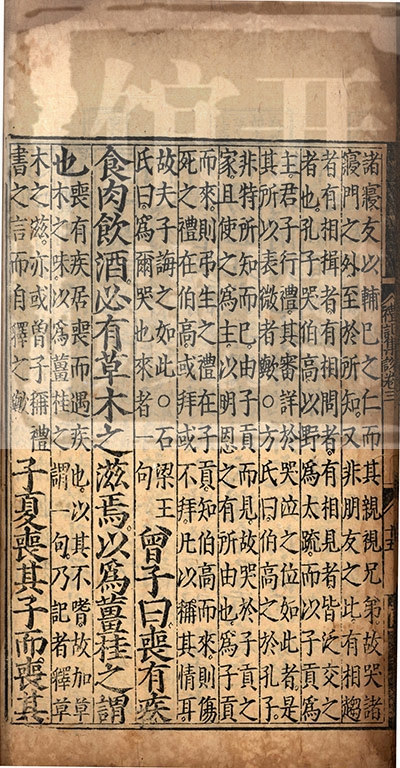 諸寢友以輔己之仁而其親視兄弟故哭諸
寢門之外至於所知又非朋友之比有相趨
者有相揖者有相問者有相見者皆泛交之
者也孔子哭伯高以野爲太踈而以子貢爲
主君子行禮其審詳於哭泣之位如此者是
其所以表微者歟○方氏曰伯高之於孔子
非特所知而已由子貢而見故哭於子貢之
家且使之爲主以明恩之有所由也爲子貢
而來則弔生之禮在子貢知伯高而來則傷
死之禮在伯高或拜或不拜凡以稱其情耳
故夫子誨之如此○石梁王
氏曰爲爾哭也來者一句
曾子曰喪有疾
食肉飲酒必有草木之滋焉以爲薑桂之謂
也
喪有疾居喪而遇疾也以其不嗜故加草
木之味以爲薑桂之謂一句乃記者釋草
木之滋亦或曾子稱禮
書之言而自釋之歟
子夏喪其子而喪其
禮記集說卷三